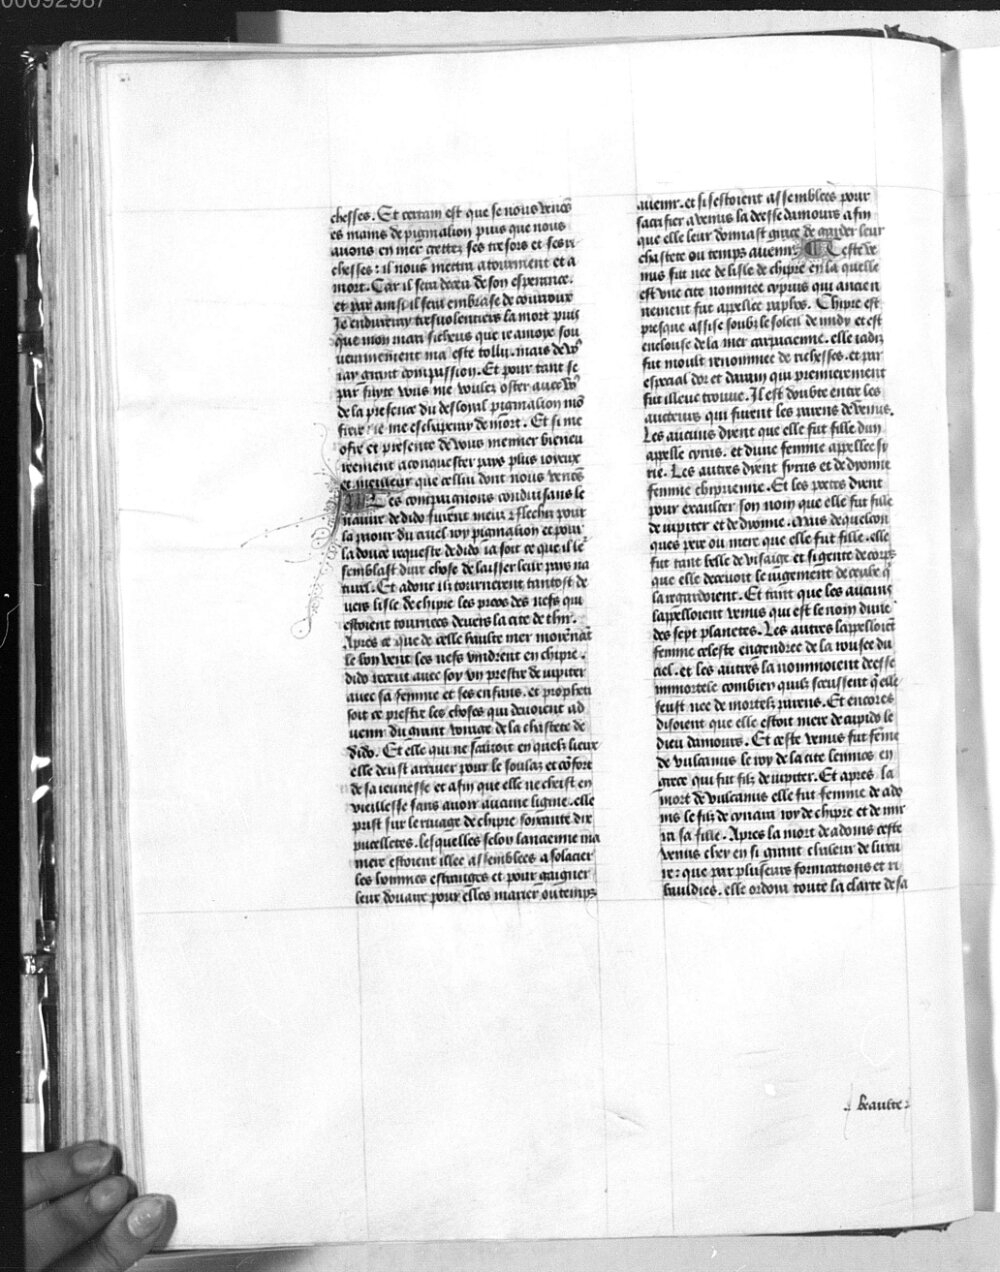 00092987
chesses. Et certain est que se nous venōs
es mains de pigmalion puis que nous
auons en mer gettez ses tresors et ses ri
chesses: il nous mettra a tourment et a
mort. Car il sera deceu de son esperance.
et par ainsi il sera embrase de courroux
Je endureray tresuolentiers la mort puis
que mon mari sicheus que ie amoye sou
uerainement ma este tollu. mais de vo⁹
iay grant compassion. Et pour tant se
par fuyte vous me voulez oster auec vo⁹
de la presence du desloial pigmalion mō
frere: ie me eschiperay de mort. Et si me
ofre et presente de vous menner bieneu
reement a conquester pays plus ioyeux
et meilleur que cellui dont nous venōs
Les compaignons conduisans le
nauire de dido furent meuz & flechiz pour
la paour du cruel roy pigmalion et pour
la douce requeste de dido ia soit ce que il le²
semblast dure chose de laisser leur pays na
turel. Et adonc ilz tournerent tantost de
uers lisle de chipre les proes des nefs qui
estoient tournees deuers la cite de thir.
Apres ce que de celle haulte mer moiēnāt
le bon vent les nefs vindrent en chipre.
dido receut auec soy vn prestre de iupiter
auec sa femme et ses enfans. et propheti
soit ce prestre les choses qui deuoient ad
uenir du grant voiage de la chastete de
dido. Et elle qui ne sauoit en quelz lieux
elle deust arriuer pour le soulaz et cōfort
de sa ieunesse et afin que elle ne cheist en
vieillesse sans auoir aucune lignie. elle
prist sur le riuage de chipre soixante dix
pucelletes. lesquelles selon lancienne ma
niere estoient illec assemblees a solacier
les hommes estranges et pour gaigner
leur douaire pour elles marier ou temps
auenir. et si sestoient assemblees pour
sacrifier a venus la deesse damours afin
que elle leur donnast grace de garder leur
chastete ou temps auenir. Ceste ve
nus fut nee de lisle de chipre en la quelle
est vne cite nommee cypnis qui ancien
nement fut appellee paphos. Chipre est
presque assise soubz le soleil de midy et est
enclouse de la mer carpacienne. elle iadiz
fut moult renommee de richesses. et par
especial dor et darain qui premierement
fut illeuc trouue. Il est doubte entre les
aucteurs qui furent les parens de venus.
Les aucuns dyent que elle fut fille dun
appelle cyrus. et dune femme appellee sy
rie. Les autres dyent syrus et de dyonie
femme chiprienne. Et les poetes dient
pour exaulcer son nom que elle fut fille
de iupiter et de dyonie. Mais de quelcon
ques pere ou mere que elle fut fille. elle
fut tant belle de visaige et si gente de corps
que elle deceuoit le iugement de ceulx q̄
la regardoient. Et tant que les aucuns
lappelloient venus qui est le nom dune
des sept planetes. Les autres lappelloiēt
femme celeste engendree de la rousee du
ciel. et les autres la nommoient deesse
immortele combien quilz sceussent q̄ elle
feust nee de mortelz parens. Et encores
disoient que elle estoit mere de cupido le
dieu damours. Et ceste venus fut fēme
de vulcanus le roy de la cite lennos en
grece qui fut filz de iupiter. Et apres la
mort de vulcanus elle fut femme de ado
nis le filz de cynara roy de chipre et de mir
ra sa fille. Apres la mort de adonis ceste
venus chey en si grant chaleur de luxu
re: que par plusieurs fornications et ri
bauldies. elle ordoia toute la clarte de sa
beaulte